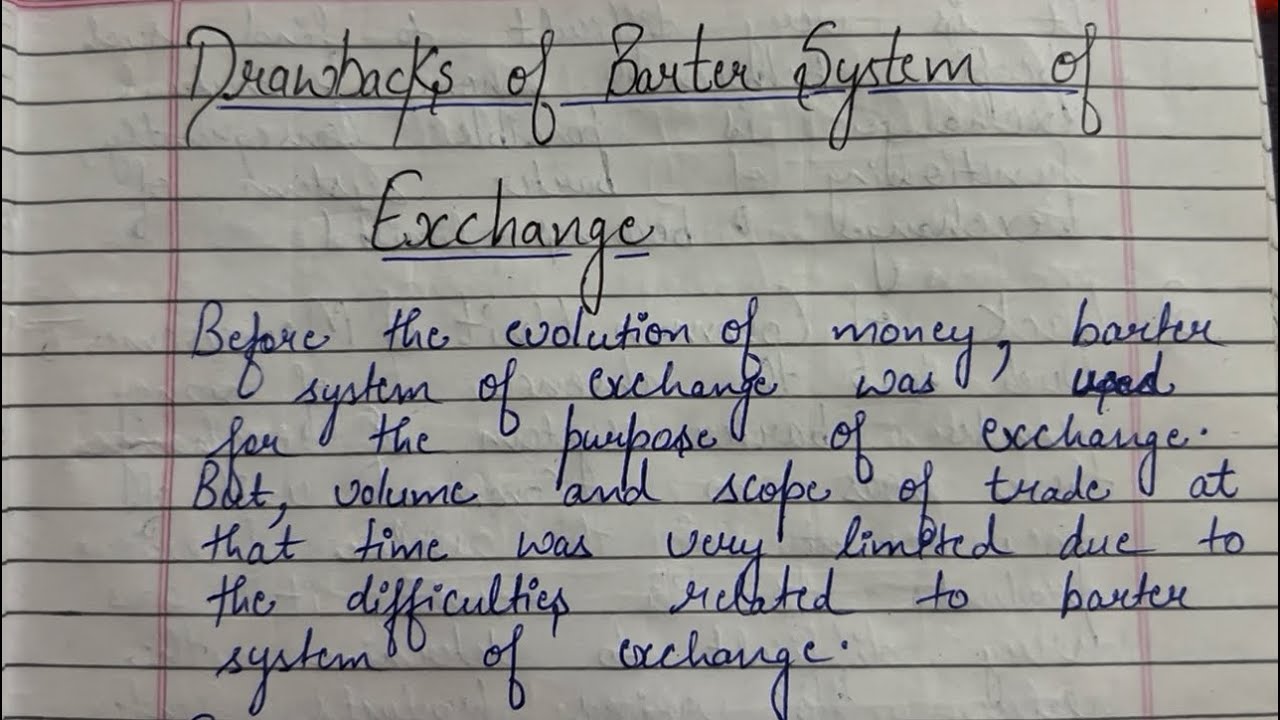 Drawbacks of Barter System of
Exchange
Before the evolution of money, barter
system of exchange was used
for the purpose of exchange.
But, volume and scope of trade at
that time was very limited due to
the difficulties related to barter
system of exchange.